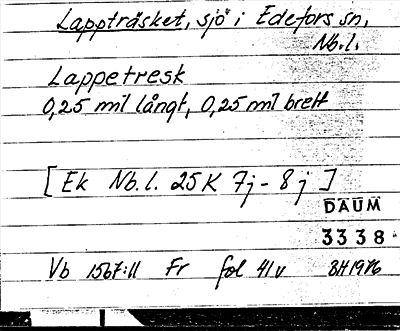 Lappträsket, sjö i Edefors sn,
Nb.l.
Lappetresk
0,25 mil långt, 0,25 mil brett
[Ek Nb.l. 25K 7j-8j]
DAUM
3338
Vb 1567:11 Fr fol 41v BH1976